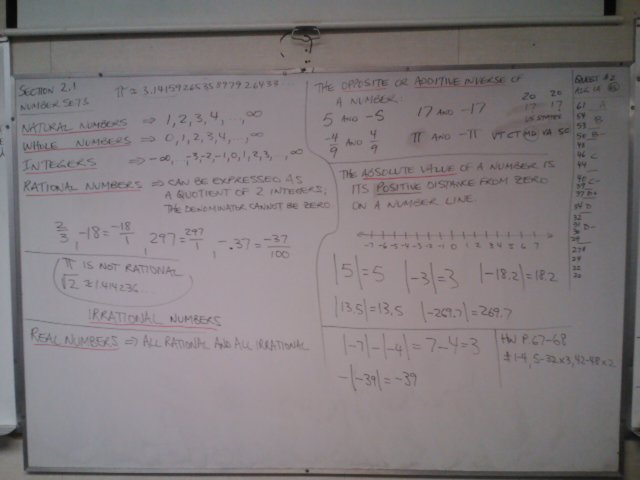 SECTION 2.1
NUMBER SETS
π ≈ 3.14159265358979 26433...
NATURAL NUMBERS ⇒ 1, 2, 3, 4, ..., ∞
WHOLE NUMBERS ⇒ 0, 1, 2, 3, 4, ..., ∞
INTEGERS ⇒ -∞, ..., -3, -2, -1, 0, 1, 2, 3, ..., ∞
RATIONAL NUMBERS ⇒ CAN BE EXPRESSED AS
A QUOTIENT OF 2 INTEGERS;
THE DENOMINATOR CANNOT BE ZERO
2/3, -18 = -18/1, 297 = 297/1, -.37 = -37/100
π IS NOT RATIONAL
√2 ≈ 1.414236...
IRRATIONAL NUMBERS
REAL NUMBERS ⇒ ALL RATIONAL AND ALL IRRATIONAL
THE OPPOSITE OR ADDITIVE INVERSE OF
A NUMBER:
5 AND -5 17 AND -17
-4/9 AND 4/9 π AND -π
20 20
17 17
US STATES
VT CT MD VA SC
THE ABSOLUTE VALUE OF A NUMBER IS
ITS POSITIVE DISTANCE FROM ZERO
ON A NUMBER LINE.
-7 -6 -5 -4 -3 -2 -1 0 1 2 3 4 5 6 7
|5| = 5 |-3| = 3 |-18.2| = 18.2
|13.5| = 13.5 |-269.7| = 269.7
|-7| - |-4| = 7 - 4 = 3
-|-39| = -39
HW P. 67-68
# 1-4, 5-32 x 3, 42-48 x 2
QUEST #2
ALG 1A
61 A
54
53 B
50 B-
48
46 C
44
40 C-
37 D+
34 D
32
31 D-